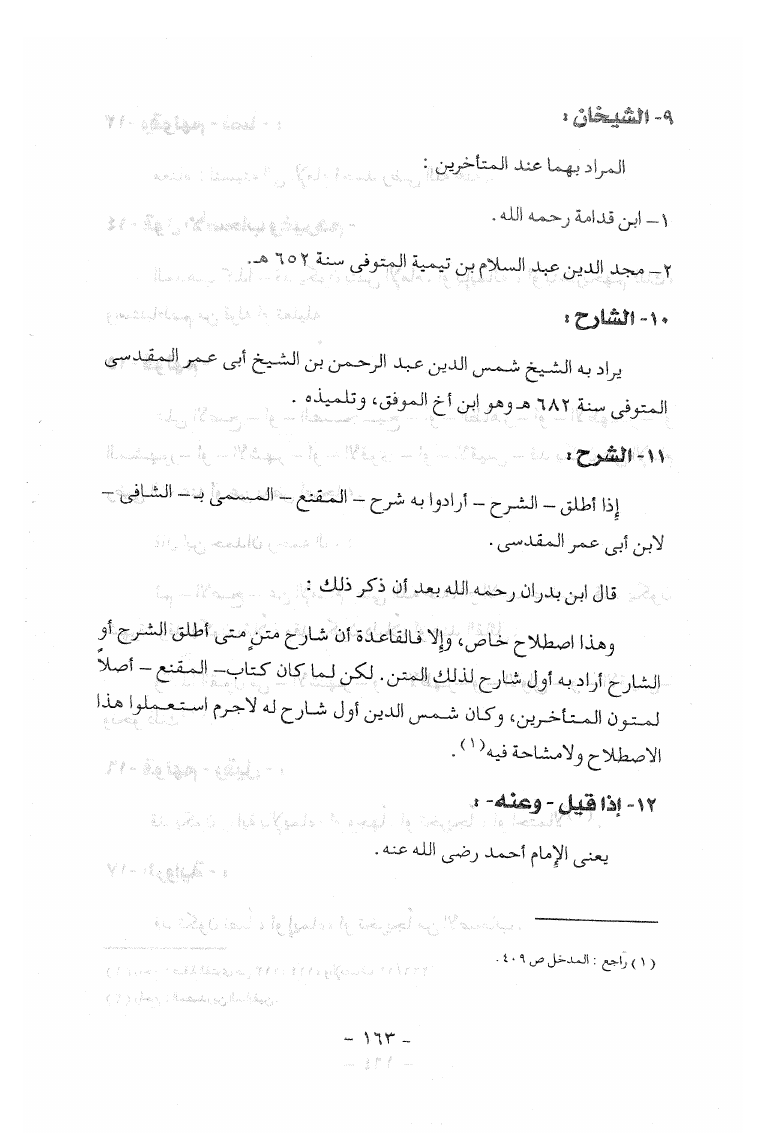 ٩- الشيخان :
المراد بهما عند المتأخرين :
١– ابن قدامة رحمه الله.
٢– مجد الدين عبد السلام بن تيمية المتوفى سنة ٦٥٢ هـ.
١٠- الشارح :
يراد به الشيخ شمس الدين عبد الرحمن بن الشيخ أبى عمر المقدسى
المتوفى سنة ٦٨٢ هـ وهو ابن أخ الموفق، وتلميذه .
١١- الشرح :
إذا أطلق – الشرح – أرادوا به شرح – المقنع – المسمى بـ – الشافى –
لابن أبى عمر المقدسى .
قال ابن بدران رحمه الله بعد أن ذكر ذلك :
وهذا اصطلاح خاص، وإلا فالقاعدة أن شارح متنٍ متى أطلق الشرح أو
الشارح أراد به أول شارح لذلك المتن. لكن لما كان كتاب– المقنع – أصلاً
لمتون المتأخرين، وكان شمس الدين أول شارح له لاجرم استعملوا هذا
الاصطلاح ولامشاحة فيه(١).
١٢- إذا قيل - وعنه- :
يعنى الإمام أحمد رضى الله عنه.
(١) راجع : المدخل ص ٤٠٩ .
– ١٦٣ –